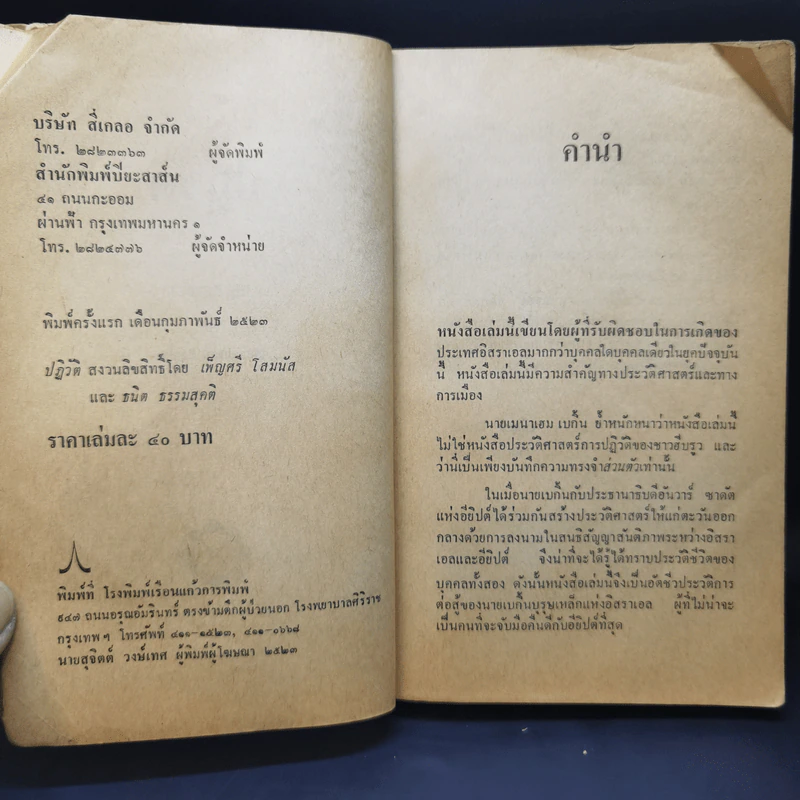 บริษัท สี่เกลอ จำกัด
โทร. ๒๘๒๓๓๖๓ ผู้จัดพิมพ์
สำนักพิมพ์ปิยะสาส์น
๔๑ ถนนกะออม
ผ่านฟ้า กรุงเทพมหานคร ๑
โทร. ๒๘๒๔๗๗๖ ผู้จัดจำหน่าย
พิมพ์ครั้งแรก เดือนกุมภาพันธ์ ๒๕๒๓
ปฏิวัติ สงวนลิขสิทธิ์โดย เพ็ญศรี โสมนัส
และ ธนิต ธรรมสุคติ
ราคาเล่มละ ๔๐ บาท
พิมพ์ที่ โรงพิมพ์เรือนแก้วการพิมพ์
๙๔๗ ถนนอรุณอัมรินทร์ ตรงข้ามตึกผู้ป่วยนอก โรงพยาบาลศิริราช
กรุงเทพฯ โทรศัพท์ ๔๑๑-๑๕๒๓, ๔๑๑-๐๖๖๘
นายสุจิตต์ วงษ์เทศ ผู้พิมพ์ผู้โฆษณา ๒๕๒๓
คำนำ
หนังสือเล่มนี้เขียนโดยผู้ที่รับผิดชอบในการเกิดของ
ประเทศอิสราเอลมากกว่าบุคคลใดบุคคลเดียวในยุคปัจจุบัน
นี้ หนังสือเล่มนี้มีความสำคัญทางประวัติศาสตร์และทาง
การเมือง
นายเมนาเฮม เบกิ้น ย้ำหนักหนาว่าหนังสือเล่มนี้
ไม่ใช่หนังสือประวัติศาสตร์การปฏิวัติของชาวฮีบรูว และ
ว่านี่เป็นเพียงบันทึกความทรงจำส่วนตัวเท่านั้น
ในเมื่อนายเบกิ้นกับประธานาธิบดีอันวาร์ ซาดัต
แห่งอียิปต์ได้ร่วมกันสร้างประวัติศาสตร์ให้แก่ตะวันออก
กลางด้วยการลงนามในสนธิสัญญาสันติภาพระหว่างอิสรา
เอลและอียิปต์ จึงน่าที่จะได้รู้ได้ทราบประวัติชีวิตของ
บุคคลทั้งสอง ดังนั้นหนังสือเล่มนี้จึงเป็นอัตชีวประวัติการ
ต่อสู้ของนายเบกิ้นบุรุษเหล็กแห่งอิสราเอล ผู้ที่ไม่น่าจะ
เป็นคนที่จะจับมือคืนดีกับอียิปต์ที่สุด